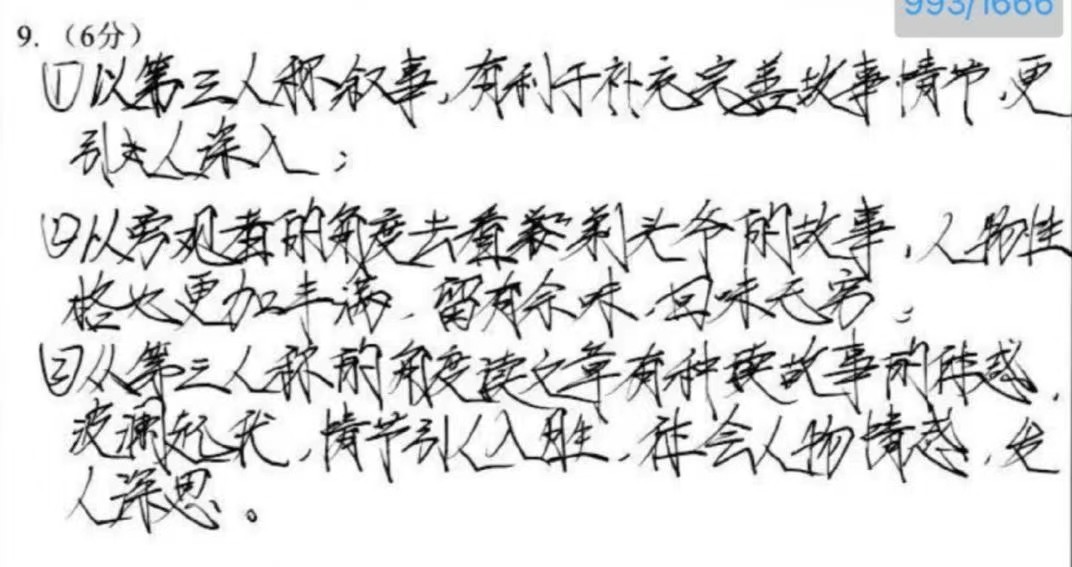 993/1666
9.（6分）
①以第三人称叙事，有利于补充完善故事情节，更
引人深入；
②以旁观者的角度去看剃头爷的故事，人物性
格也更加丰满，留有余味，回味无穷；
③从第三人称的角度读文章有种读故事的体感，
波澜起伏，情节引人入胜，体会人物情感，发
人深思。